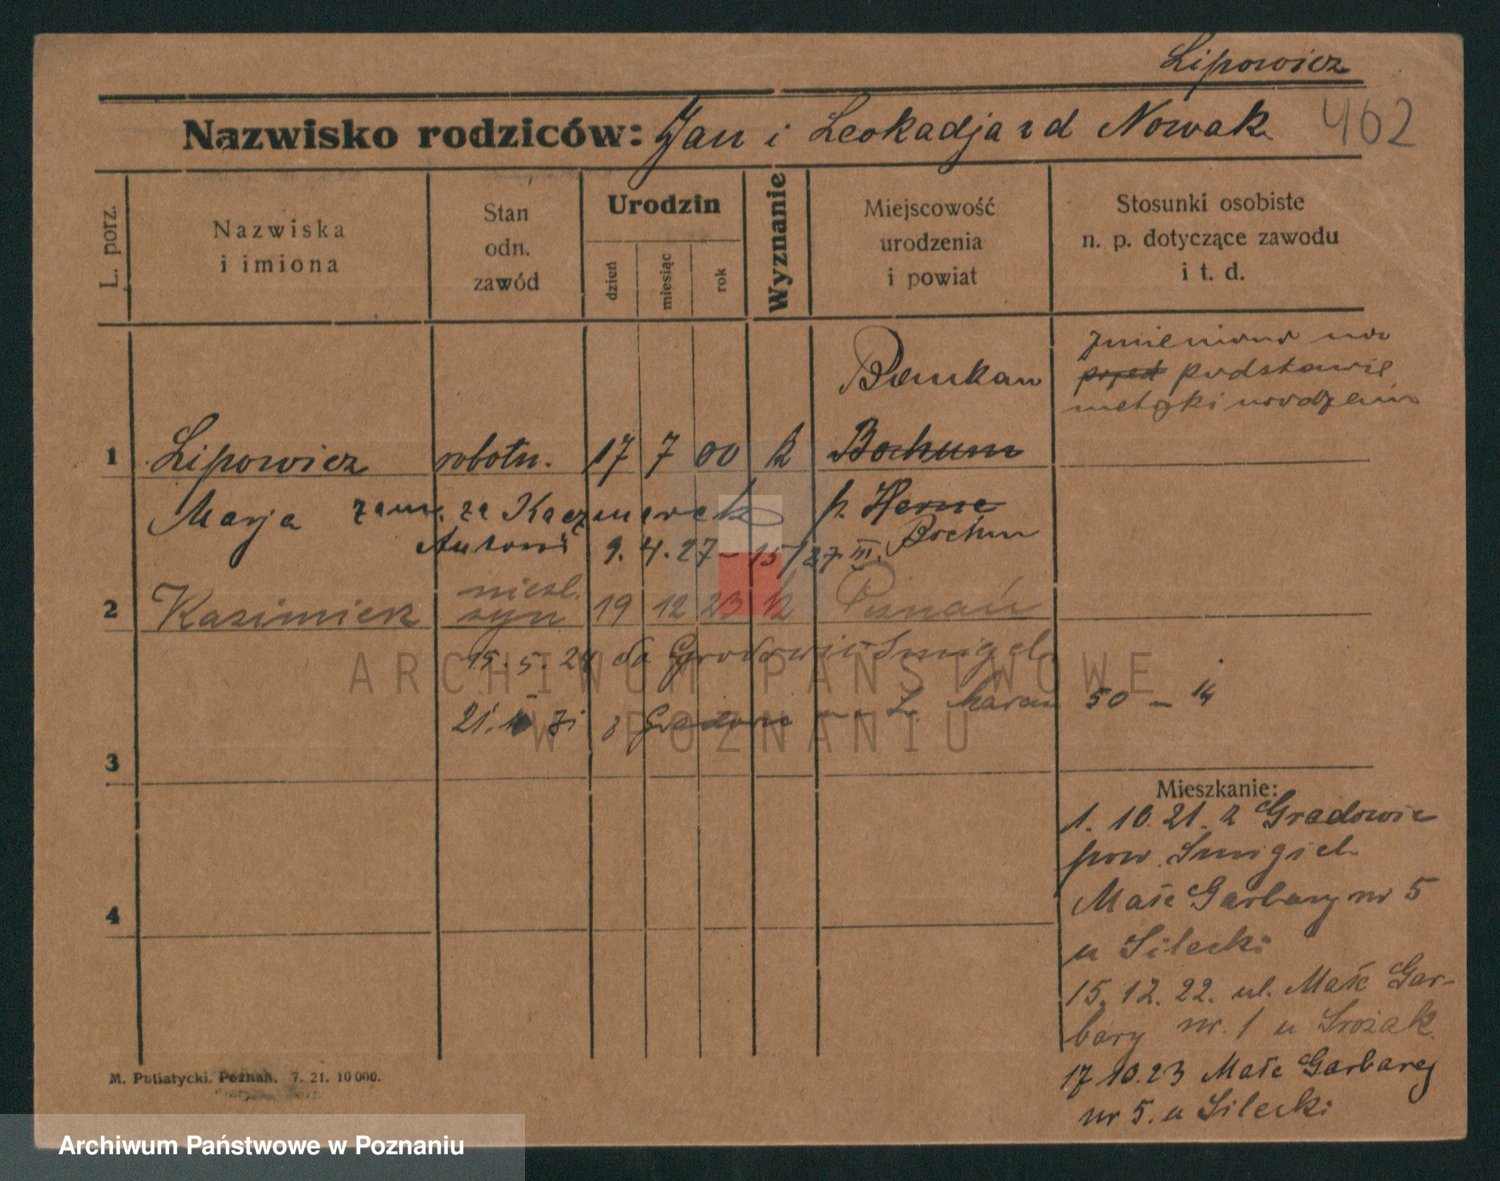 Lipowicz
Nazwisko rodziców: Jan i Leokadja z d Nowak 462
L. porz.
Nazwiska
i imiona
Stan
odn.
zawód
Urodzin
dzień
miesiąc
rok
Wyznanie
Miejscowość
urodzenia
i powiat
Stosunki osobiste
n. p. dotyczące zawodu
i t. d.
zmieniono na
podstawie
metryki urodzenia
1 Lipowicz robotn. 17 7 00 k Bochum
Marja zam. za Kaczmarek p. Herne
Antoni 9. 4. 27 - 15/27 III. Bochum
2 Kazimierz nieśl. syn 19 12 23 k Poznań
15. 5. 24 do Gradowic Śmigiel
21. z Gradowic 50 - 14
3
4
Mieszkanie:
1. 10. 21. z Gradowic
pow. Śmigiel
Małe Garbary nr 5
u Silecki
15. 12. 22. ul. Małe Gar-
bary nr. 1 u Srożak
17 10. 23 Małe Garbary
nr 5. u Silecki
M. Putiatycki. Poznań. 7. 21. 10 000.
ARCHIWUM PAŃSTWOWE
W POZNANIU
Archiwum Państwowe w Poznaniu